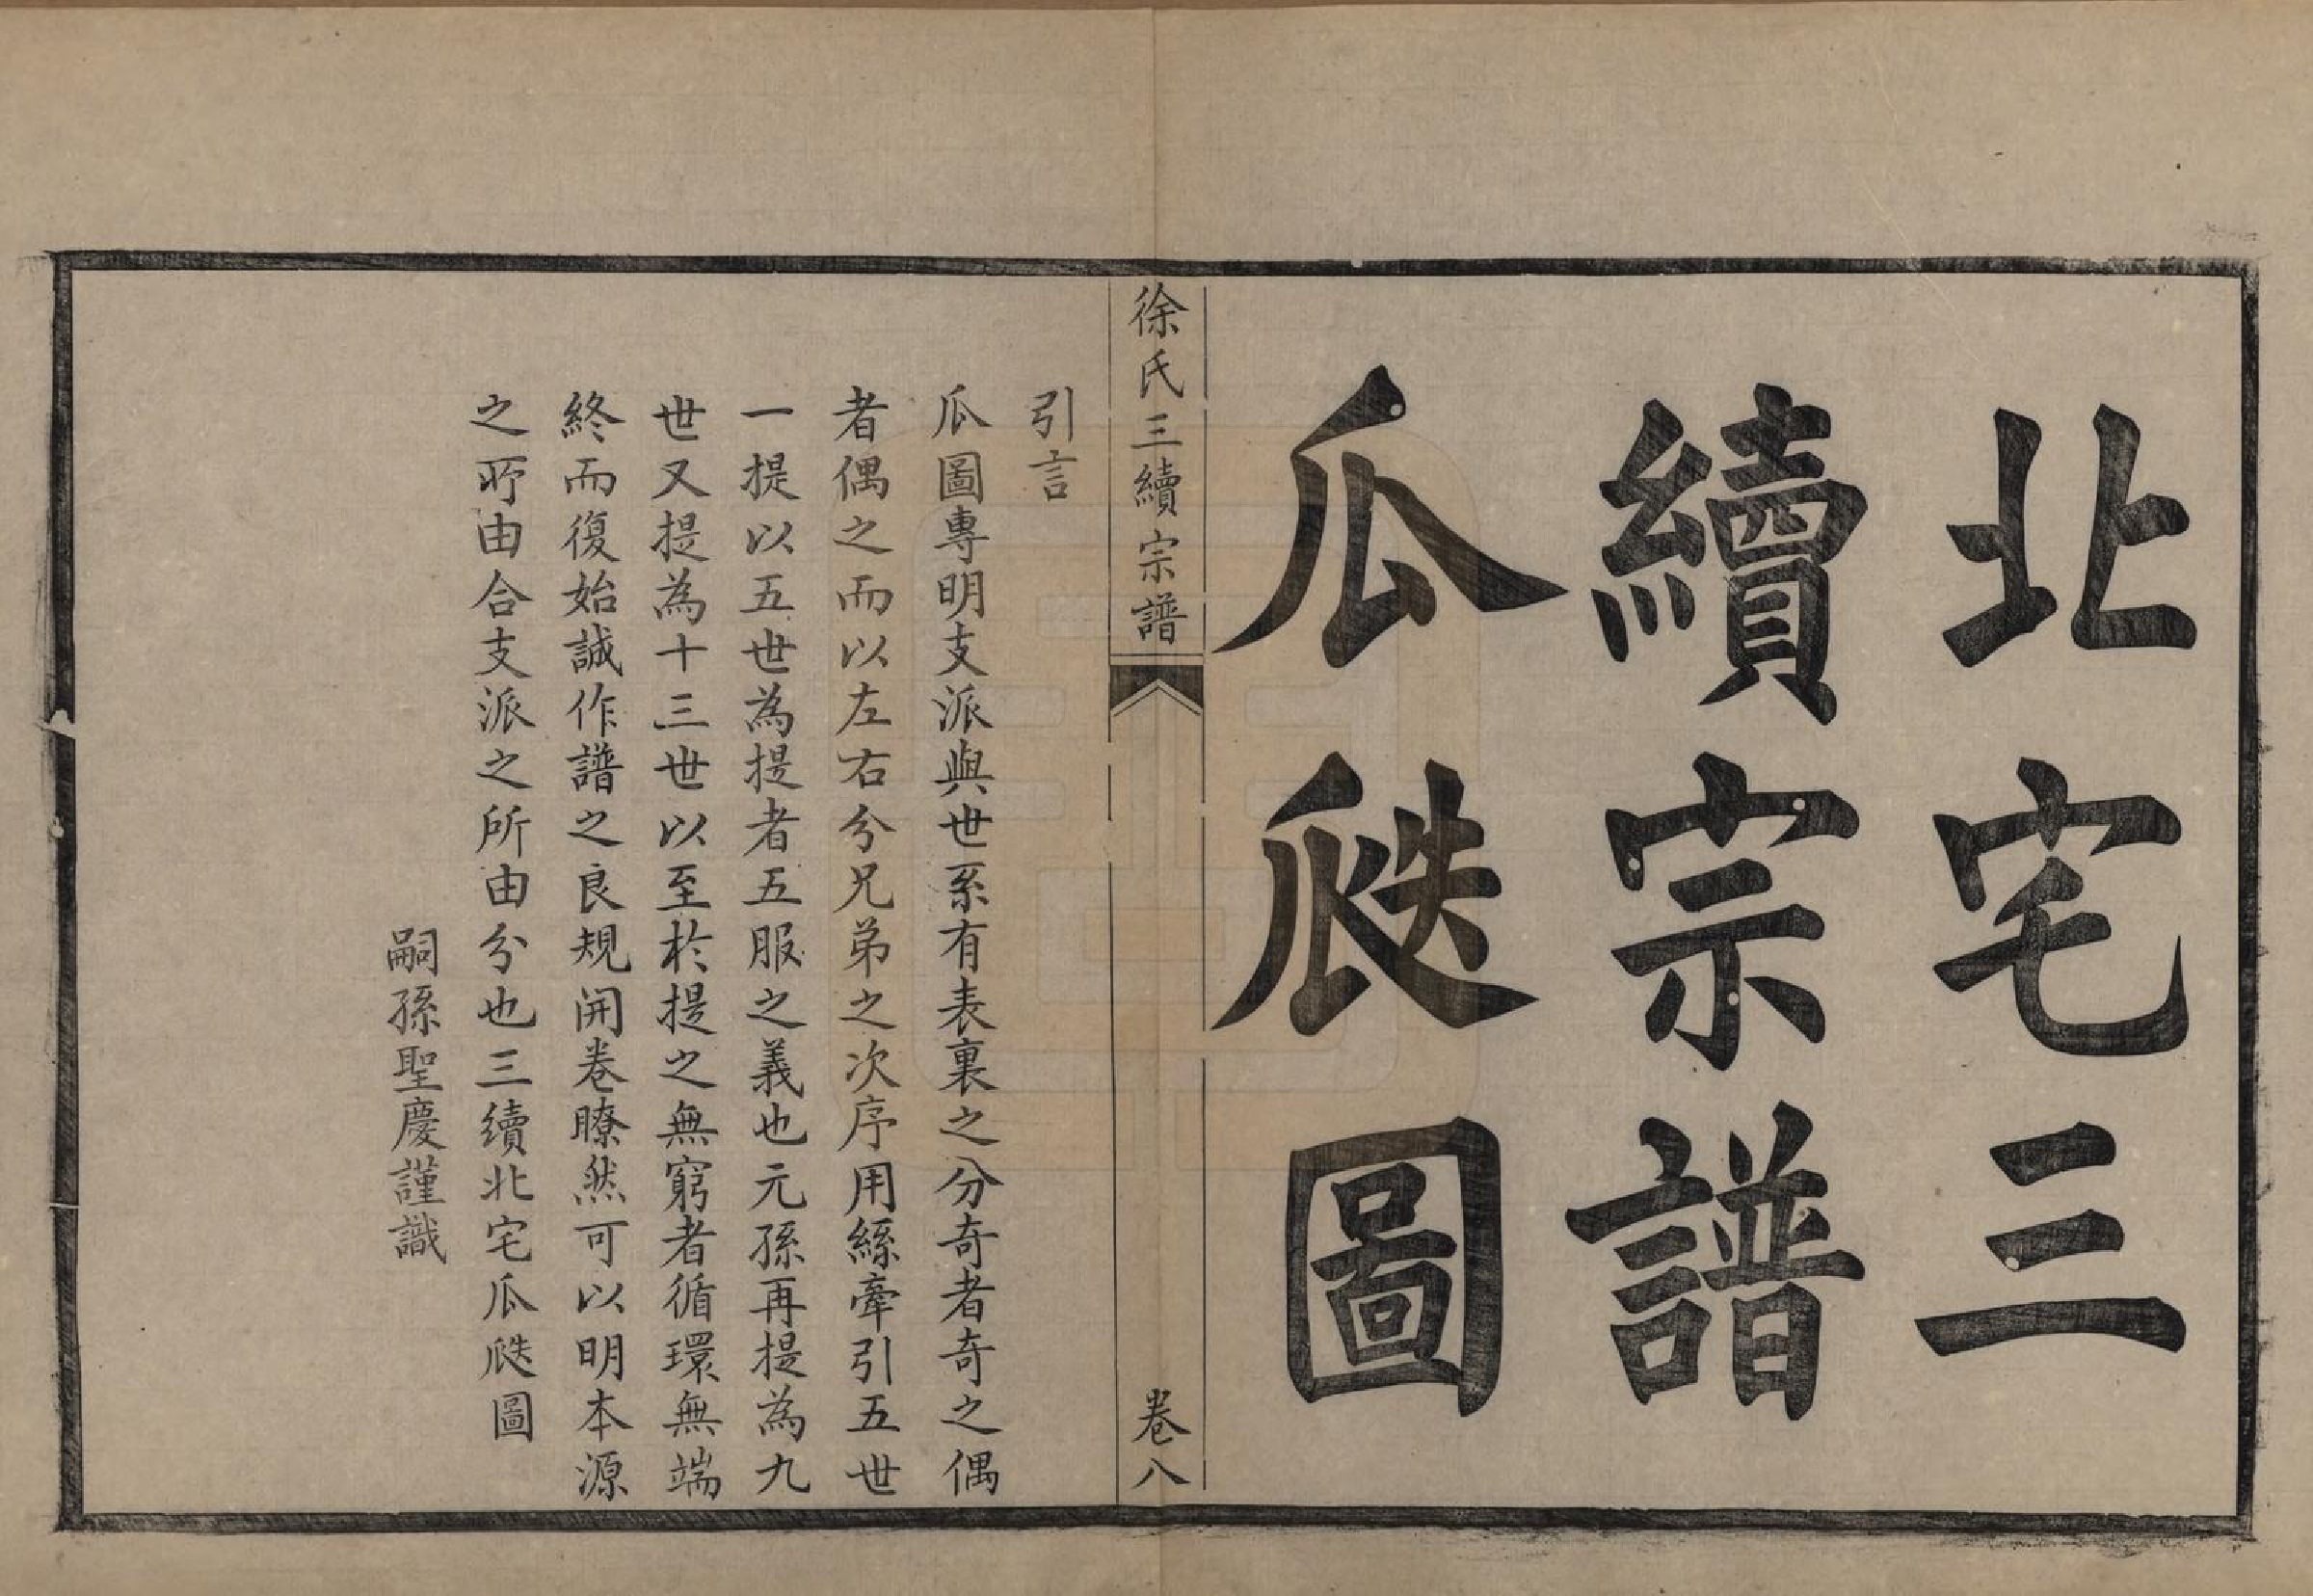 北宅三
續宗譜
瓜瓞圖
徐氏三續宗譜
卷八
引言
瓜圖專明支派與世系有表裏之分奇者奇之偶
者偶之而以左右分兄弟之次序用縣牽引五世
一提以五世為提者五服之義也元孫再提為九
世又提為十三世以至於提之無窮者循環無端
終而復始誠作譜之良規開卷瞭然可以明本源
之所由合支派之所由分也三續北宅瓜瓞圖
嗣孫聖慶謹識